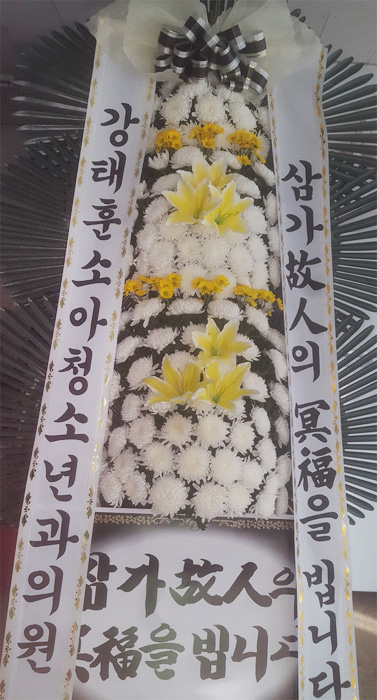 강태훈소아청소년과의원
삼가故人의 冥福을 빕니다
삼가故人의
冥福을 빕니다